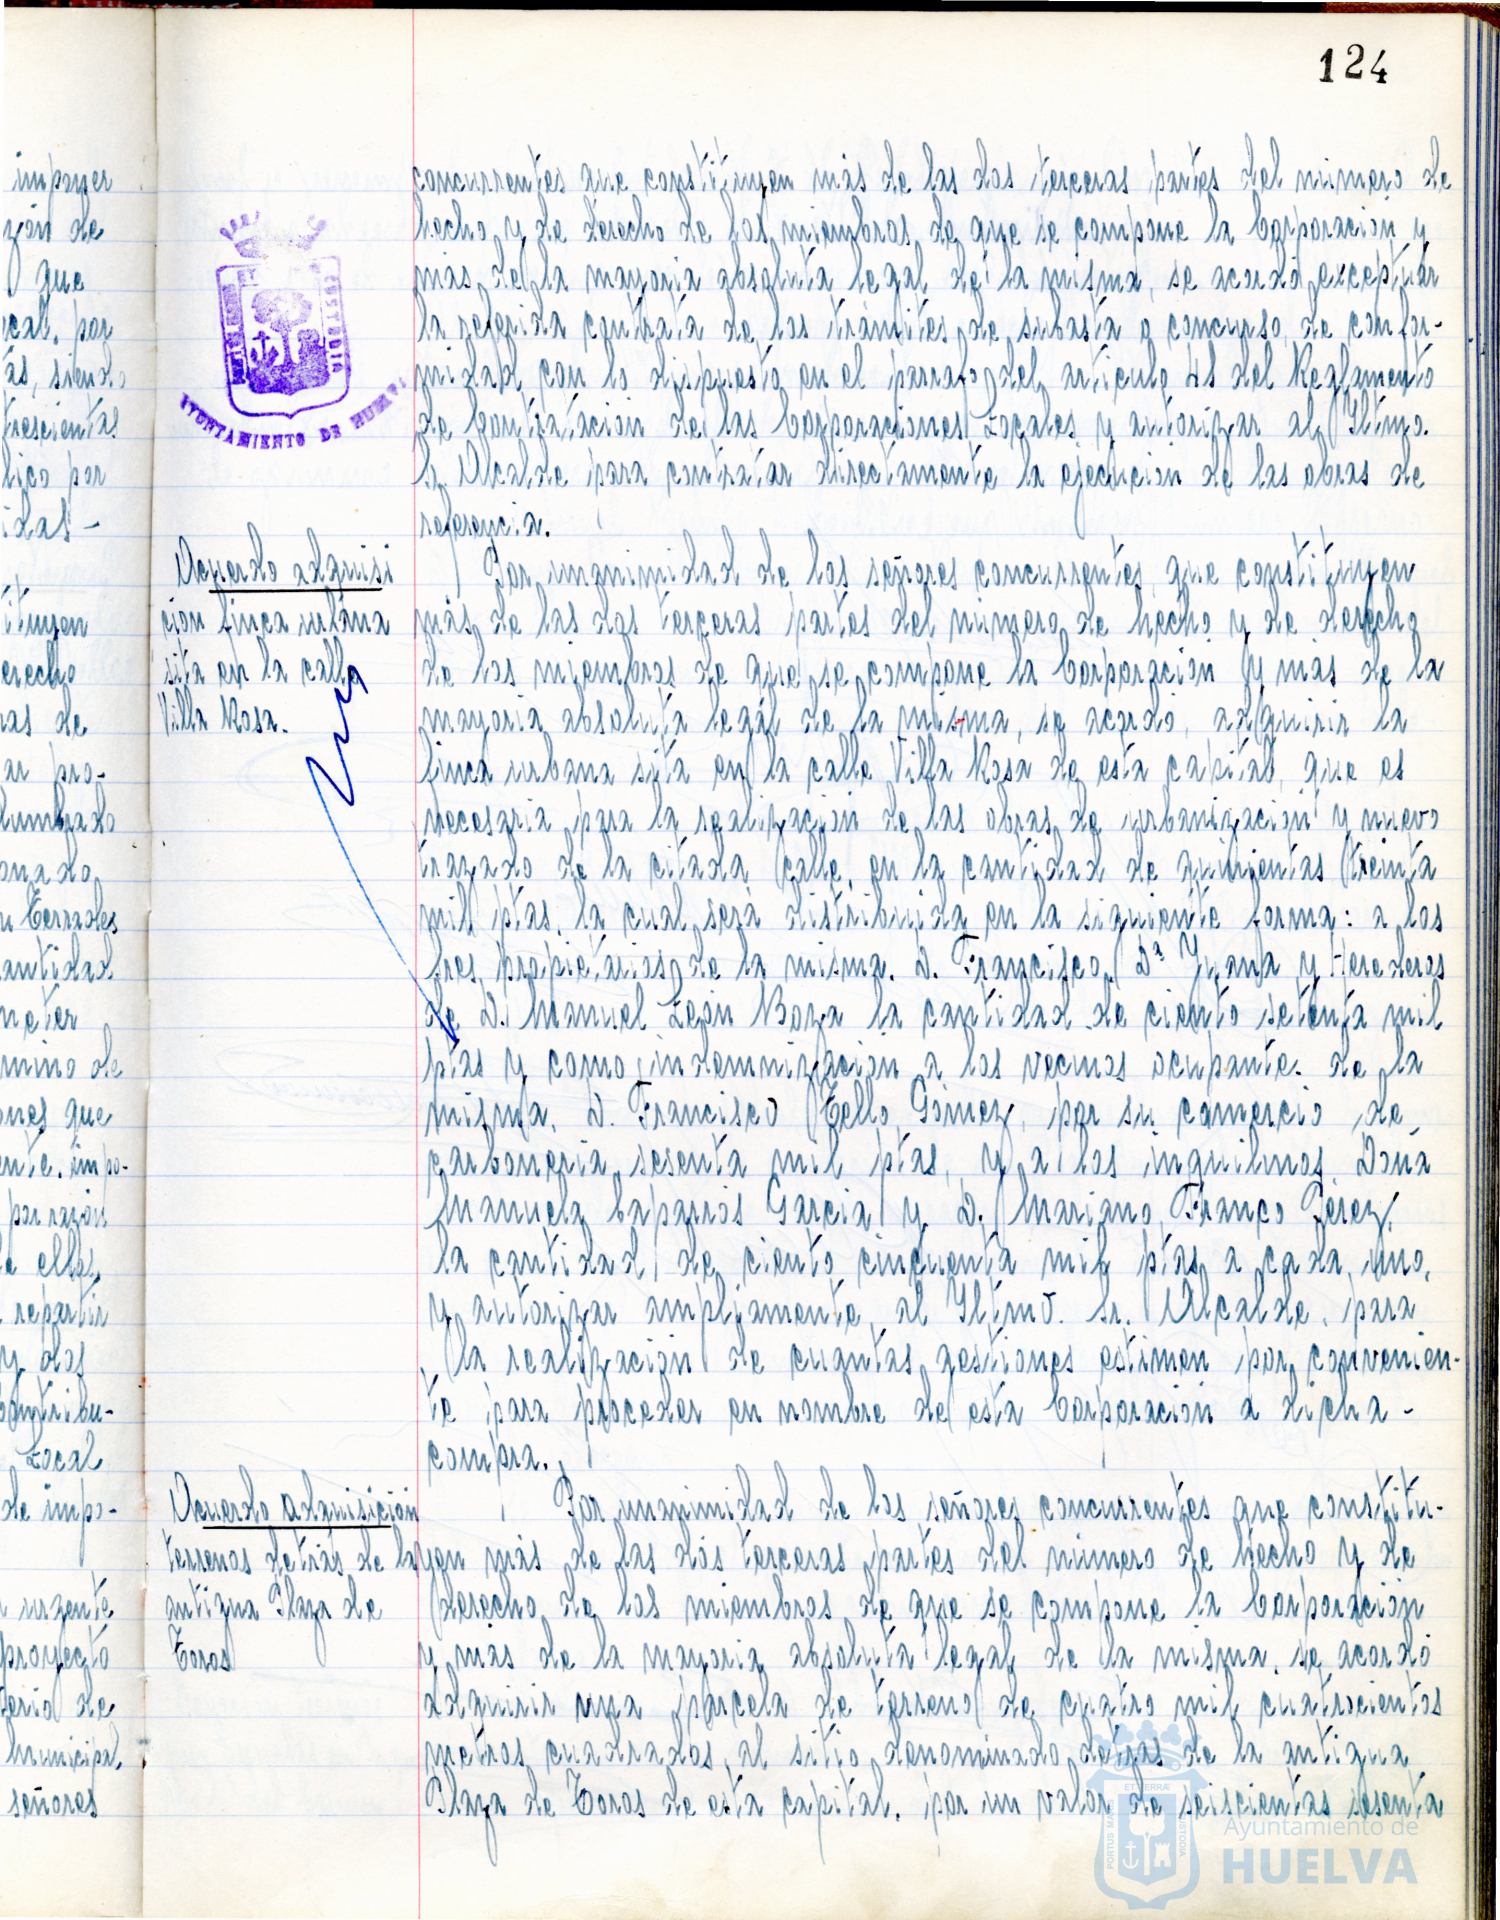 124
imponer
zón de
que
cal, por
as, siendo
trescientas
lico por
idas -
tituyen
erecho
as de
ar pro-
lumbrado
onado,
n Terrades
antidad
meter
mino de
ones que
ente, impo-
por razón
e ellas,
repartir
y dos
Contribu-
Local
de impo-
urgente
proyecto
terio de
Municipal,
señores
AYUNTAMIENTO DE HUELVA
CUSTODIA
concurrentes que constituyen más de las dos terceras partes del número de
hecho y de derecho de los miembros de que se compone la Corporación y
más de la mayoria absoluta legal de la misma, se acordó exceptuar
la referida contrata de los trámites de subasta o concurso, de confor-
midad con lo dispuesto en el parrafo del articulo 41 del Reglamento
de Contratación de las Corporaciones Locales y autorizar al Iltmo.
Sr. Alcalde para contratar directamente la ejecución de las obras de
referencia.
Acuerdo adquisi
cion finca urbana
sita en la calle
Villa Rosa.
Por unanimidad de los señores concurrentes, que constituyen
más de las dos terceras partes del número de hecho y de derecho
de los miembros de que se compone la Corporación y más de la
mayoria absoluta legal de la misma, se acordó, adquirir la
finca urbana sita en la calle Villa Rosa de esta capital, que es
necesaria para la realización de las obras de urbanización y nuevo
trazado de la citada calle, en la cantidad de quinientas treinta
mil ptas, la cual será distribuida en la siguiente forma: a los
tres propietarios de la misma, D. Francisco, Dª Juana y Herederos
de D. Manuel León Boza la cantidad de ciento setenta mil
ptas y como indemnización a los vecinos ocupante. de la
misma, D. Francisco Tello Gómez, por su comercio de
carboneria, sesenta mil ptas, y a los inquilinos Doña
Manuela Caparrós Garcia y D. Mariano Franco Pérez,
la cantidad de ciento cincuenta mil ptas a cada uno,
y autorizar ampliamente al Iltmo. Sr. Alcalde, para
la realización de cuantas gestiones estimen por convenien-
te para proceder en nombre de esta Corporación a dicha -
compra.
Acuerdo adquisicion
terrenos detrás de la
antigua Plaza de
Toros
Por unanimidad de los señores concurrentes que constitu-
yen más de las dos terceras partes del número de hecho y de
derecho de los miembros de que se compone la Corporación
y más de la mayoria absoluta legal de la misma, se acordó
adquirir una parcela de terreno de cuatro mil cuatrocientos
metros cuadrados, al sitio denominado detras de la antigua
Plaza de Toros de esta capital, por un valor de seiscientas sesenta
ET TERRÆ
PORTUS MA
CUSTODIA
Ayuntamiento de
HUELVA